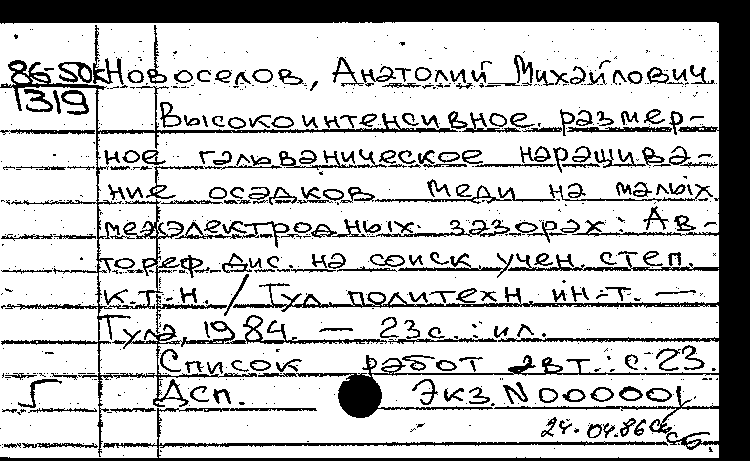 86-50к Новоселов, Анатолий Михайлович.
1319
Высокоинтенсивное размер-
ное гальваническое наращива-
ние осадков меди на малых
межэлектродных зазорах: Ав-
тореф. дис. на соиск. учен. степ.
к.т.н. / Тул. политехн. ин-т. —
Тула, 1984. — 23 с.: ил.
Список работ авт.: с. 23.
Дсп. Экз. N 000001
24.04.86